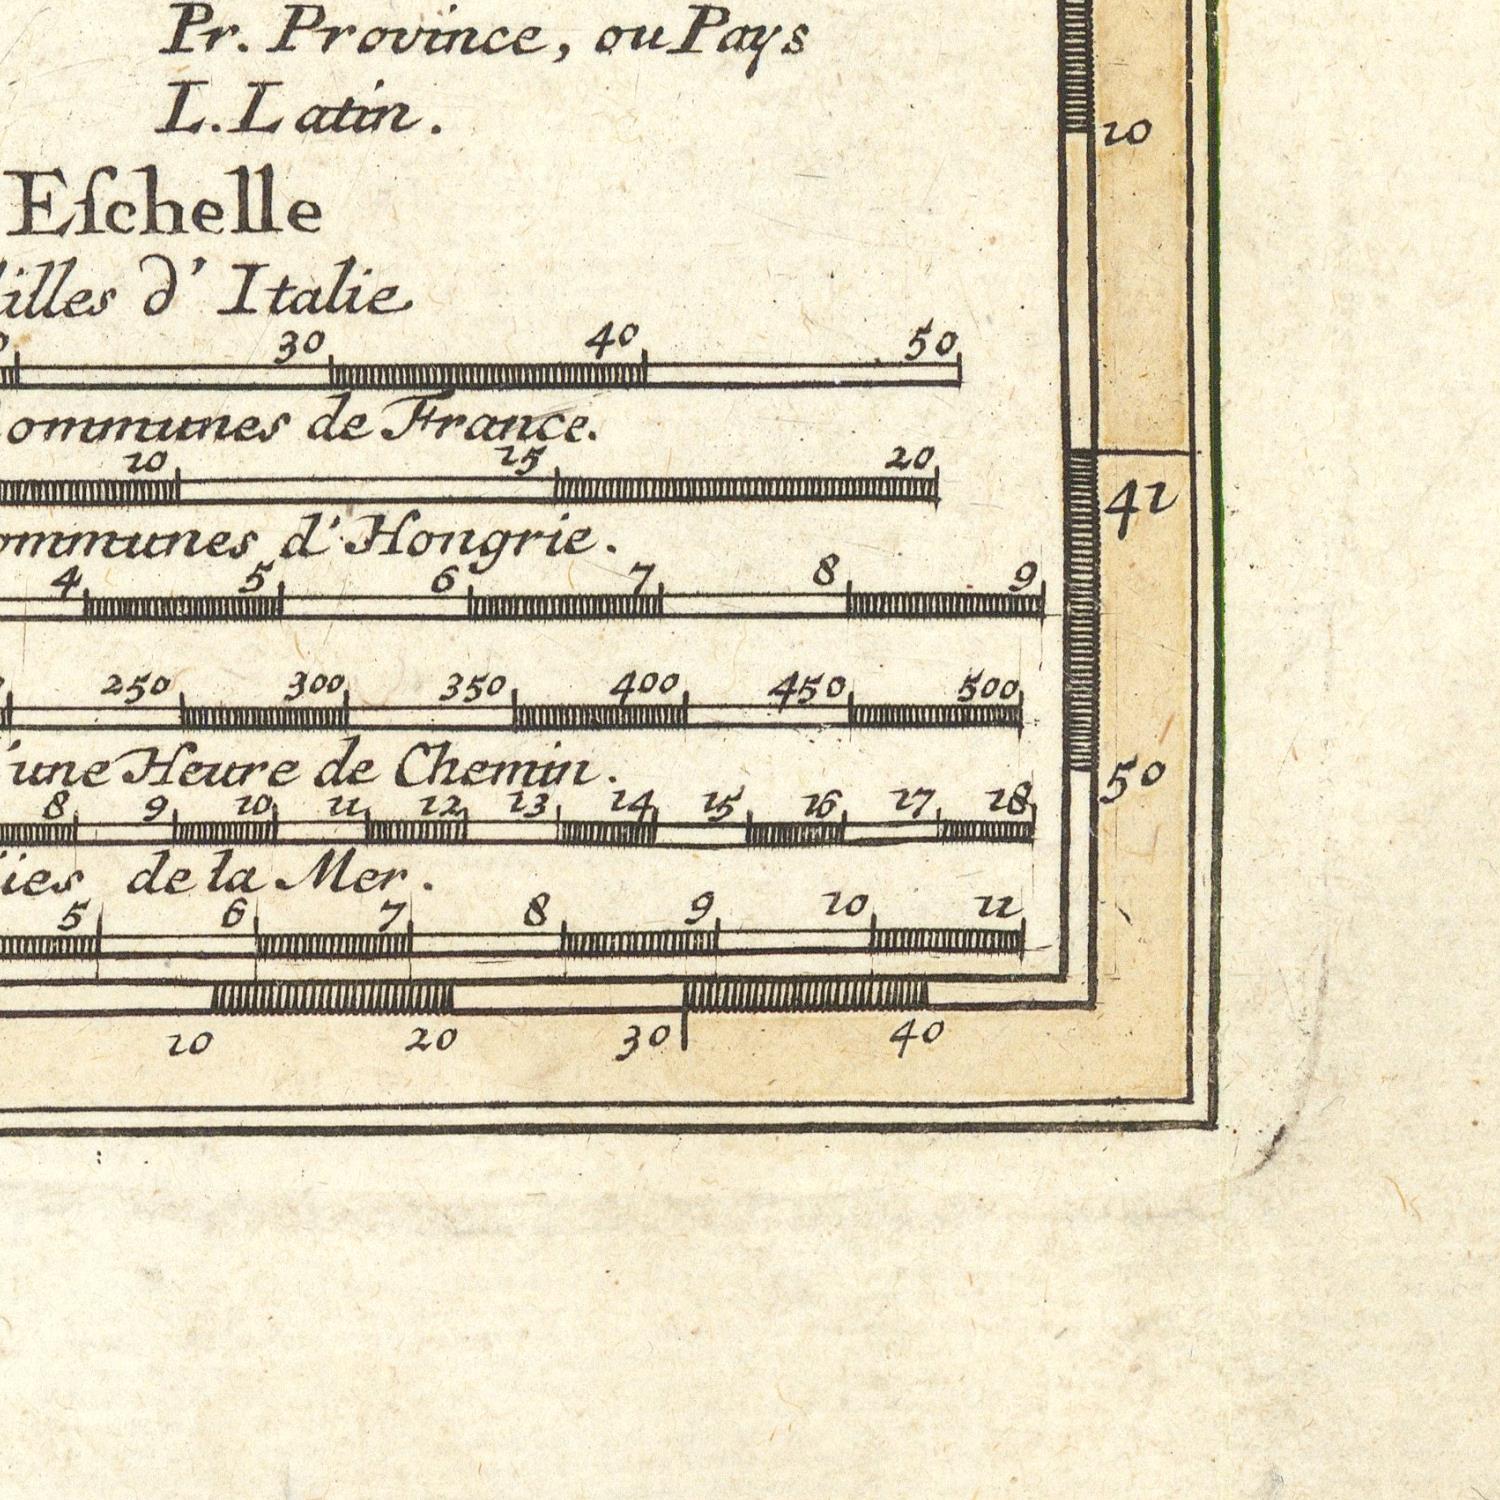 Pr. Province, ou Pays
L. Latin.
Eſchelle
d'Italie
30 40 50
de France.
10 15 20
d'Hongrie.
4 5 6 7 8 9
250 300 350 400 450 500
une Heure de Chemin.
8 9 10 11 12 13 14 15 16 17 18
de la Mer.
5 6 7 8 9 10 11
10 20 30 40
10
41
50